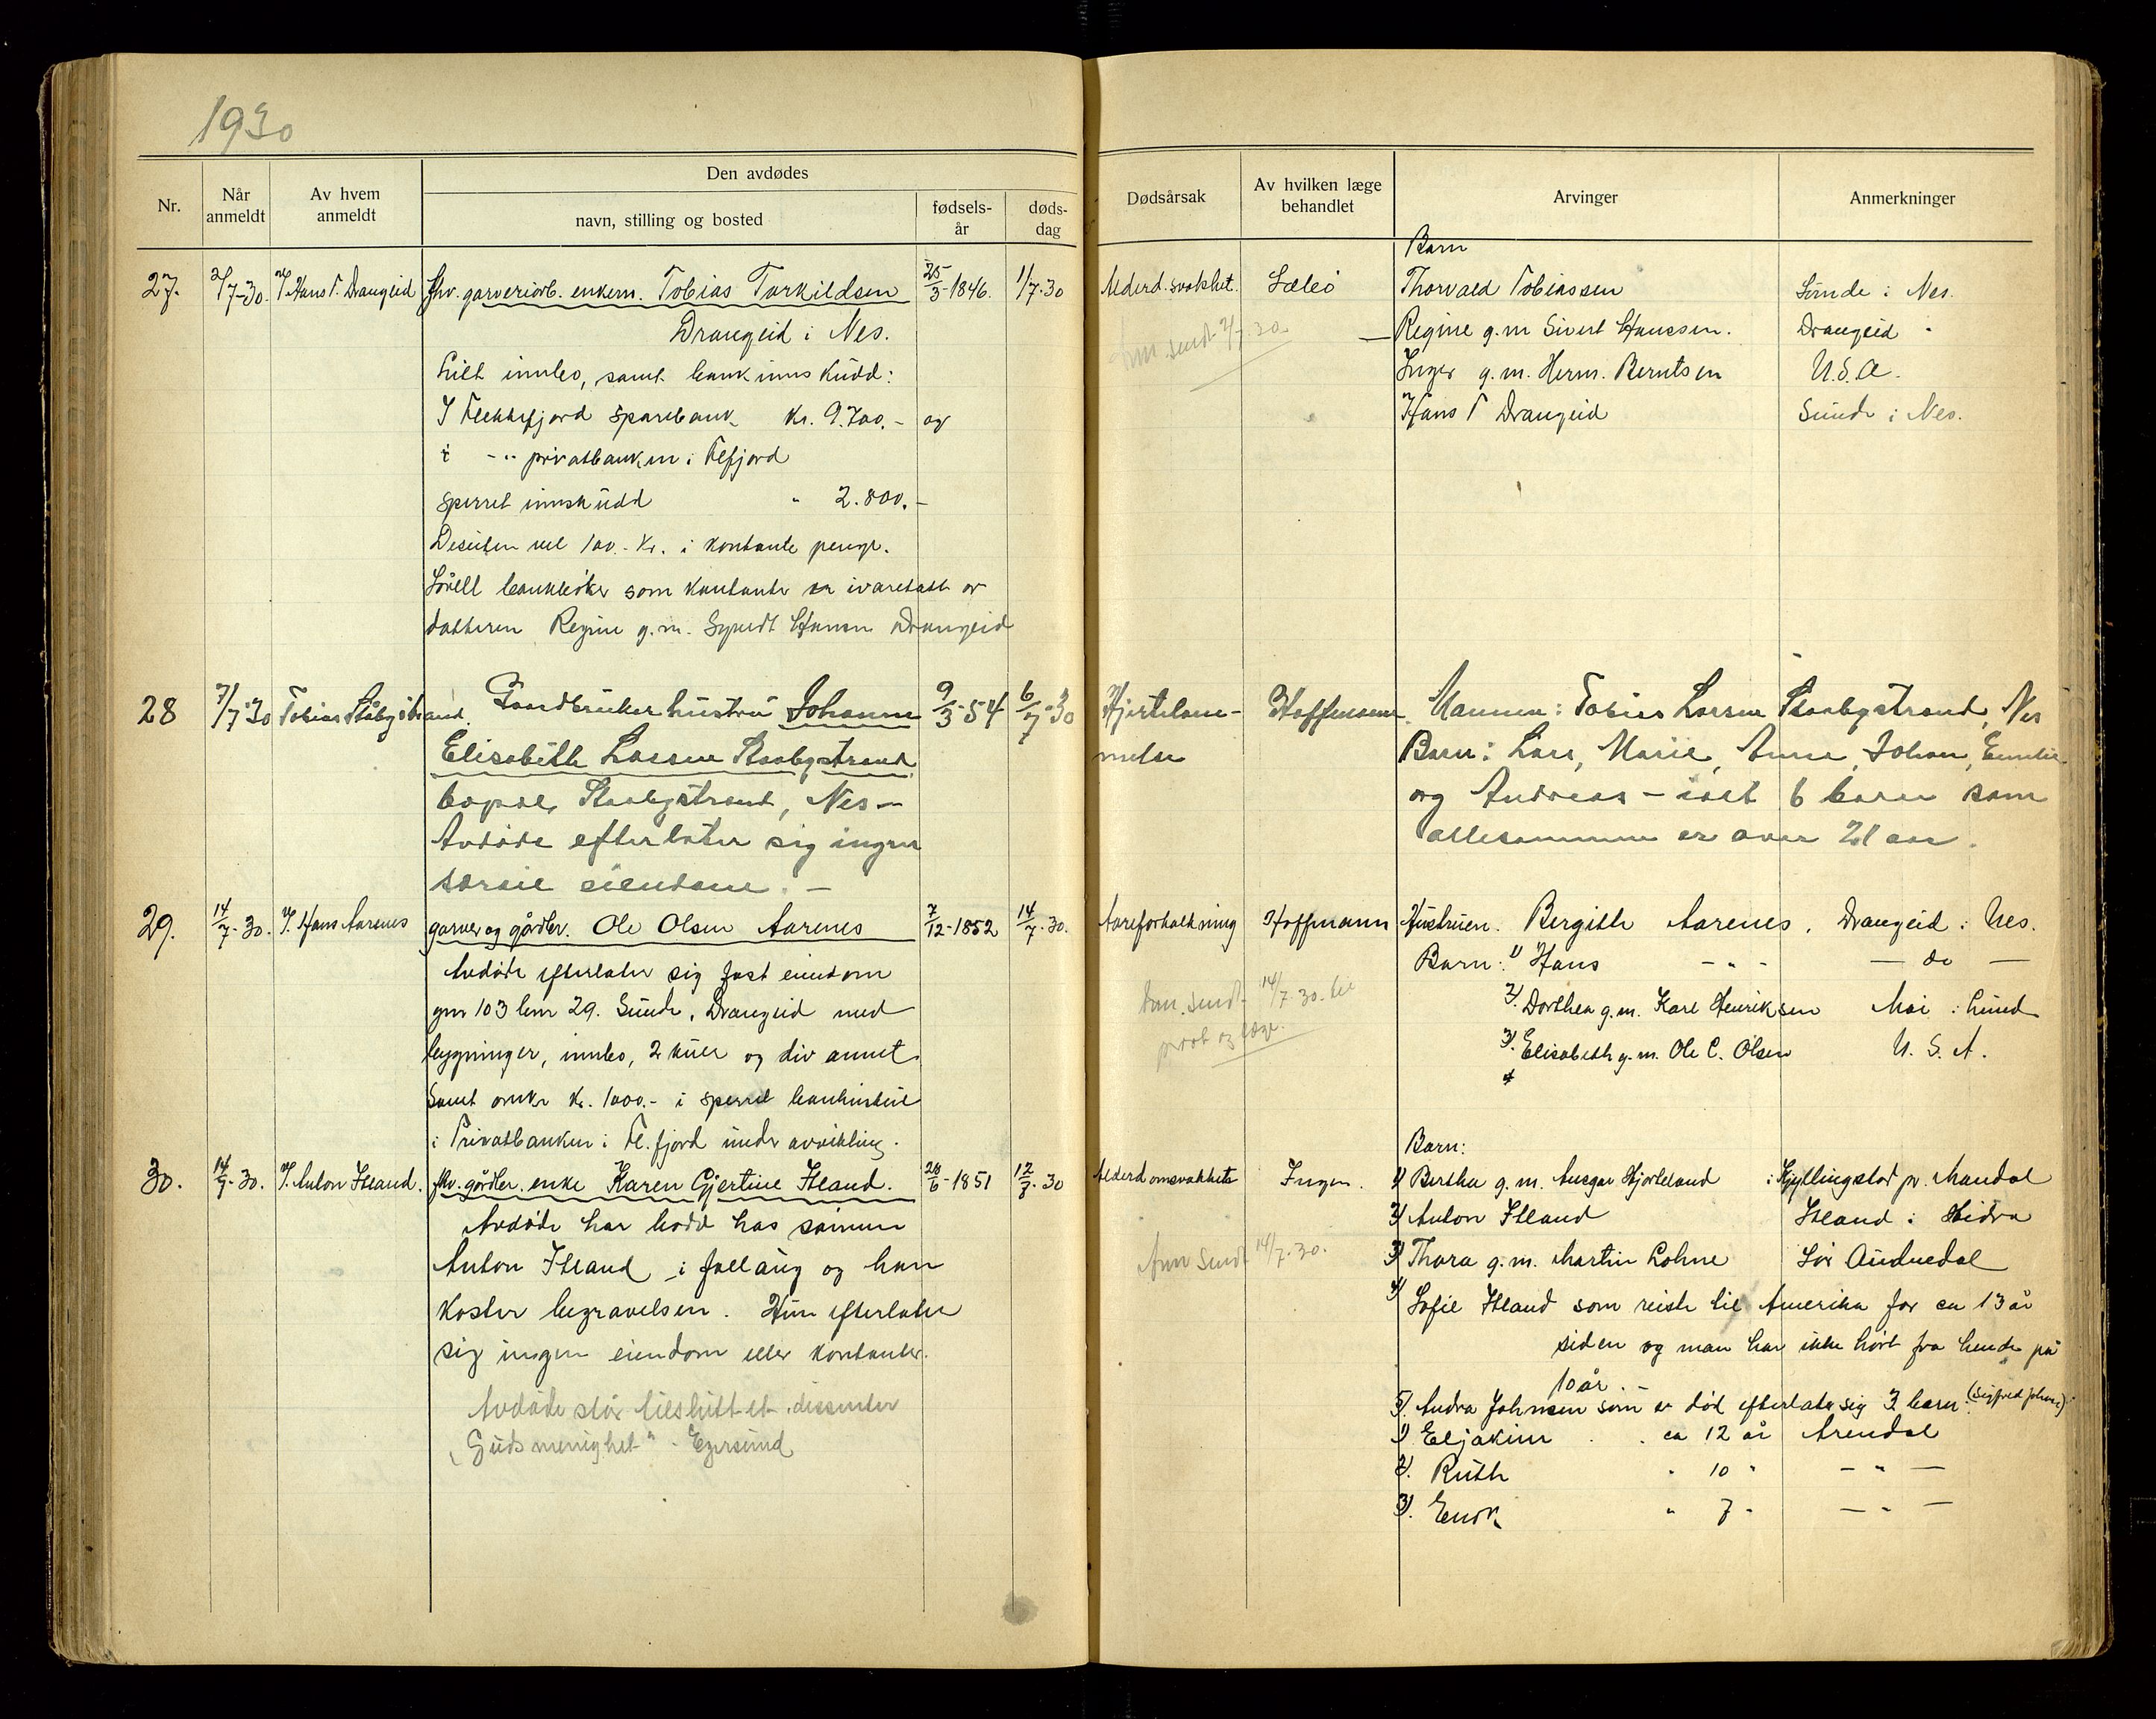 1930
Nr.
Når anmeldt
Av hvem anmeldt
Den avdødes
navn, stilling og bosted
fødsels-år
døds-dag
Dødsårsak
Av hvilken læge behandlet
Arvinger
Anmerkninger
27. 2/7-30. Hans T. Drangeid fhv. garveriarb. enkem. Tobias Tarkildsen 25/3-1846. 1/7-30 Alderd. svakhet.
Drangeid i Nes.
Litt innbo, samt bankinnskudd:
I Flekkefjord sparebank kr. 9.700.- og
i -"- privatbanken i Flfjord
sperret innskudd " 2.800.-
Desuten vel 100.- kr. i kontante penge.
Såvell bankbøker som kontanter er ivaretatt av
datteren Regine g.m. Syvert Hansen Drangeid
Ann. sendt 2/7 30.
Barn
Thorvald Tobiassen Sunde i Nes.
Regine g.m Sivert Hanssen. Drangeid "
Inger g.m. Herm. Berntsen U.S.A.
Hans T Drangeid Sunde i Nes.
28 7/7-30 Tobias Ståbystrand. Gaardbruker hustru Johanne 9/3-54 6/7-30 Hjertelam- Hoffmann. Mannen: Tobias Larsen Staabystrand, Nes
Elisabeth Larsen Staabystrand melse Barn: Lars, Marie, Anna, Johan, Emilie
bopæl Staabystrand, Nes — og Andreas – ialt 6 barn som
Avdøde efterlater sig ingen allesammen er over 21 aar.
særeie eiendom. —
29. 14/7-30. Hans Aarenes garver og gårdbr. Ole Olsen Aarenes 7/12-1852 14/7-30. Aareforkalkning Hoffmann Hustruen. Bergithe Aarenes, Drangeid i Nes.
Avdøde efterlater sig fast eiendom Barn: 1) Hans -"- — do —
gnr 103 bnr 29. Sunde, Drangeid med 2). Dorthea g.m. Karl Henriksen Moi i Lund
bygninger, innbo, 2 kuer og div annet. 3). Elisabeth g.m. Ole C. Olsen U.S.A.
Samt omkr kr. 1000.- i sperret
i Privatbanken i Fl.fjord under avvikling.
Ann. sendt 14/7-30. til
prest og
30. 14/7-30. Anton Itland. fhv. gårdbr. enke Karen Gjertine Itland. 28/6-1851 12/7-30 Alderdomsvakhets Ingen.
Avdøde har bodd hos sønnen
Anton Itland i fellaug og han
koster begravelsen. Hun efterlater
sig ingen eiendom eller kontanter.
Avdøde står tilsluttet dissenter
"Guds menighet" - Egersund
Ann sendt 14/7-30.
Barn:
1) Bertha g.m. Ansgar Hjorteland i Kyllingstad pr. Mandal
2) Anton Itland Itland i Hidra
3) Thora g.m. Martin Lohne Sør Audnedal
4) Sofie Itland som reiste til Amerika for ca 13 år
siden og man har ikke hørt fra hende på
10 år. —
5). Andra Johnsen som er død efterlater sig 3 barn.
1) Eljakim . . ca 12 år Arendal
2). Ruth " 10 " — " —
3). Enok " 7 " — " —